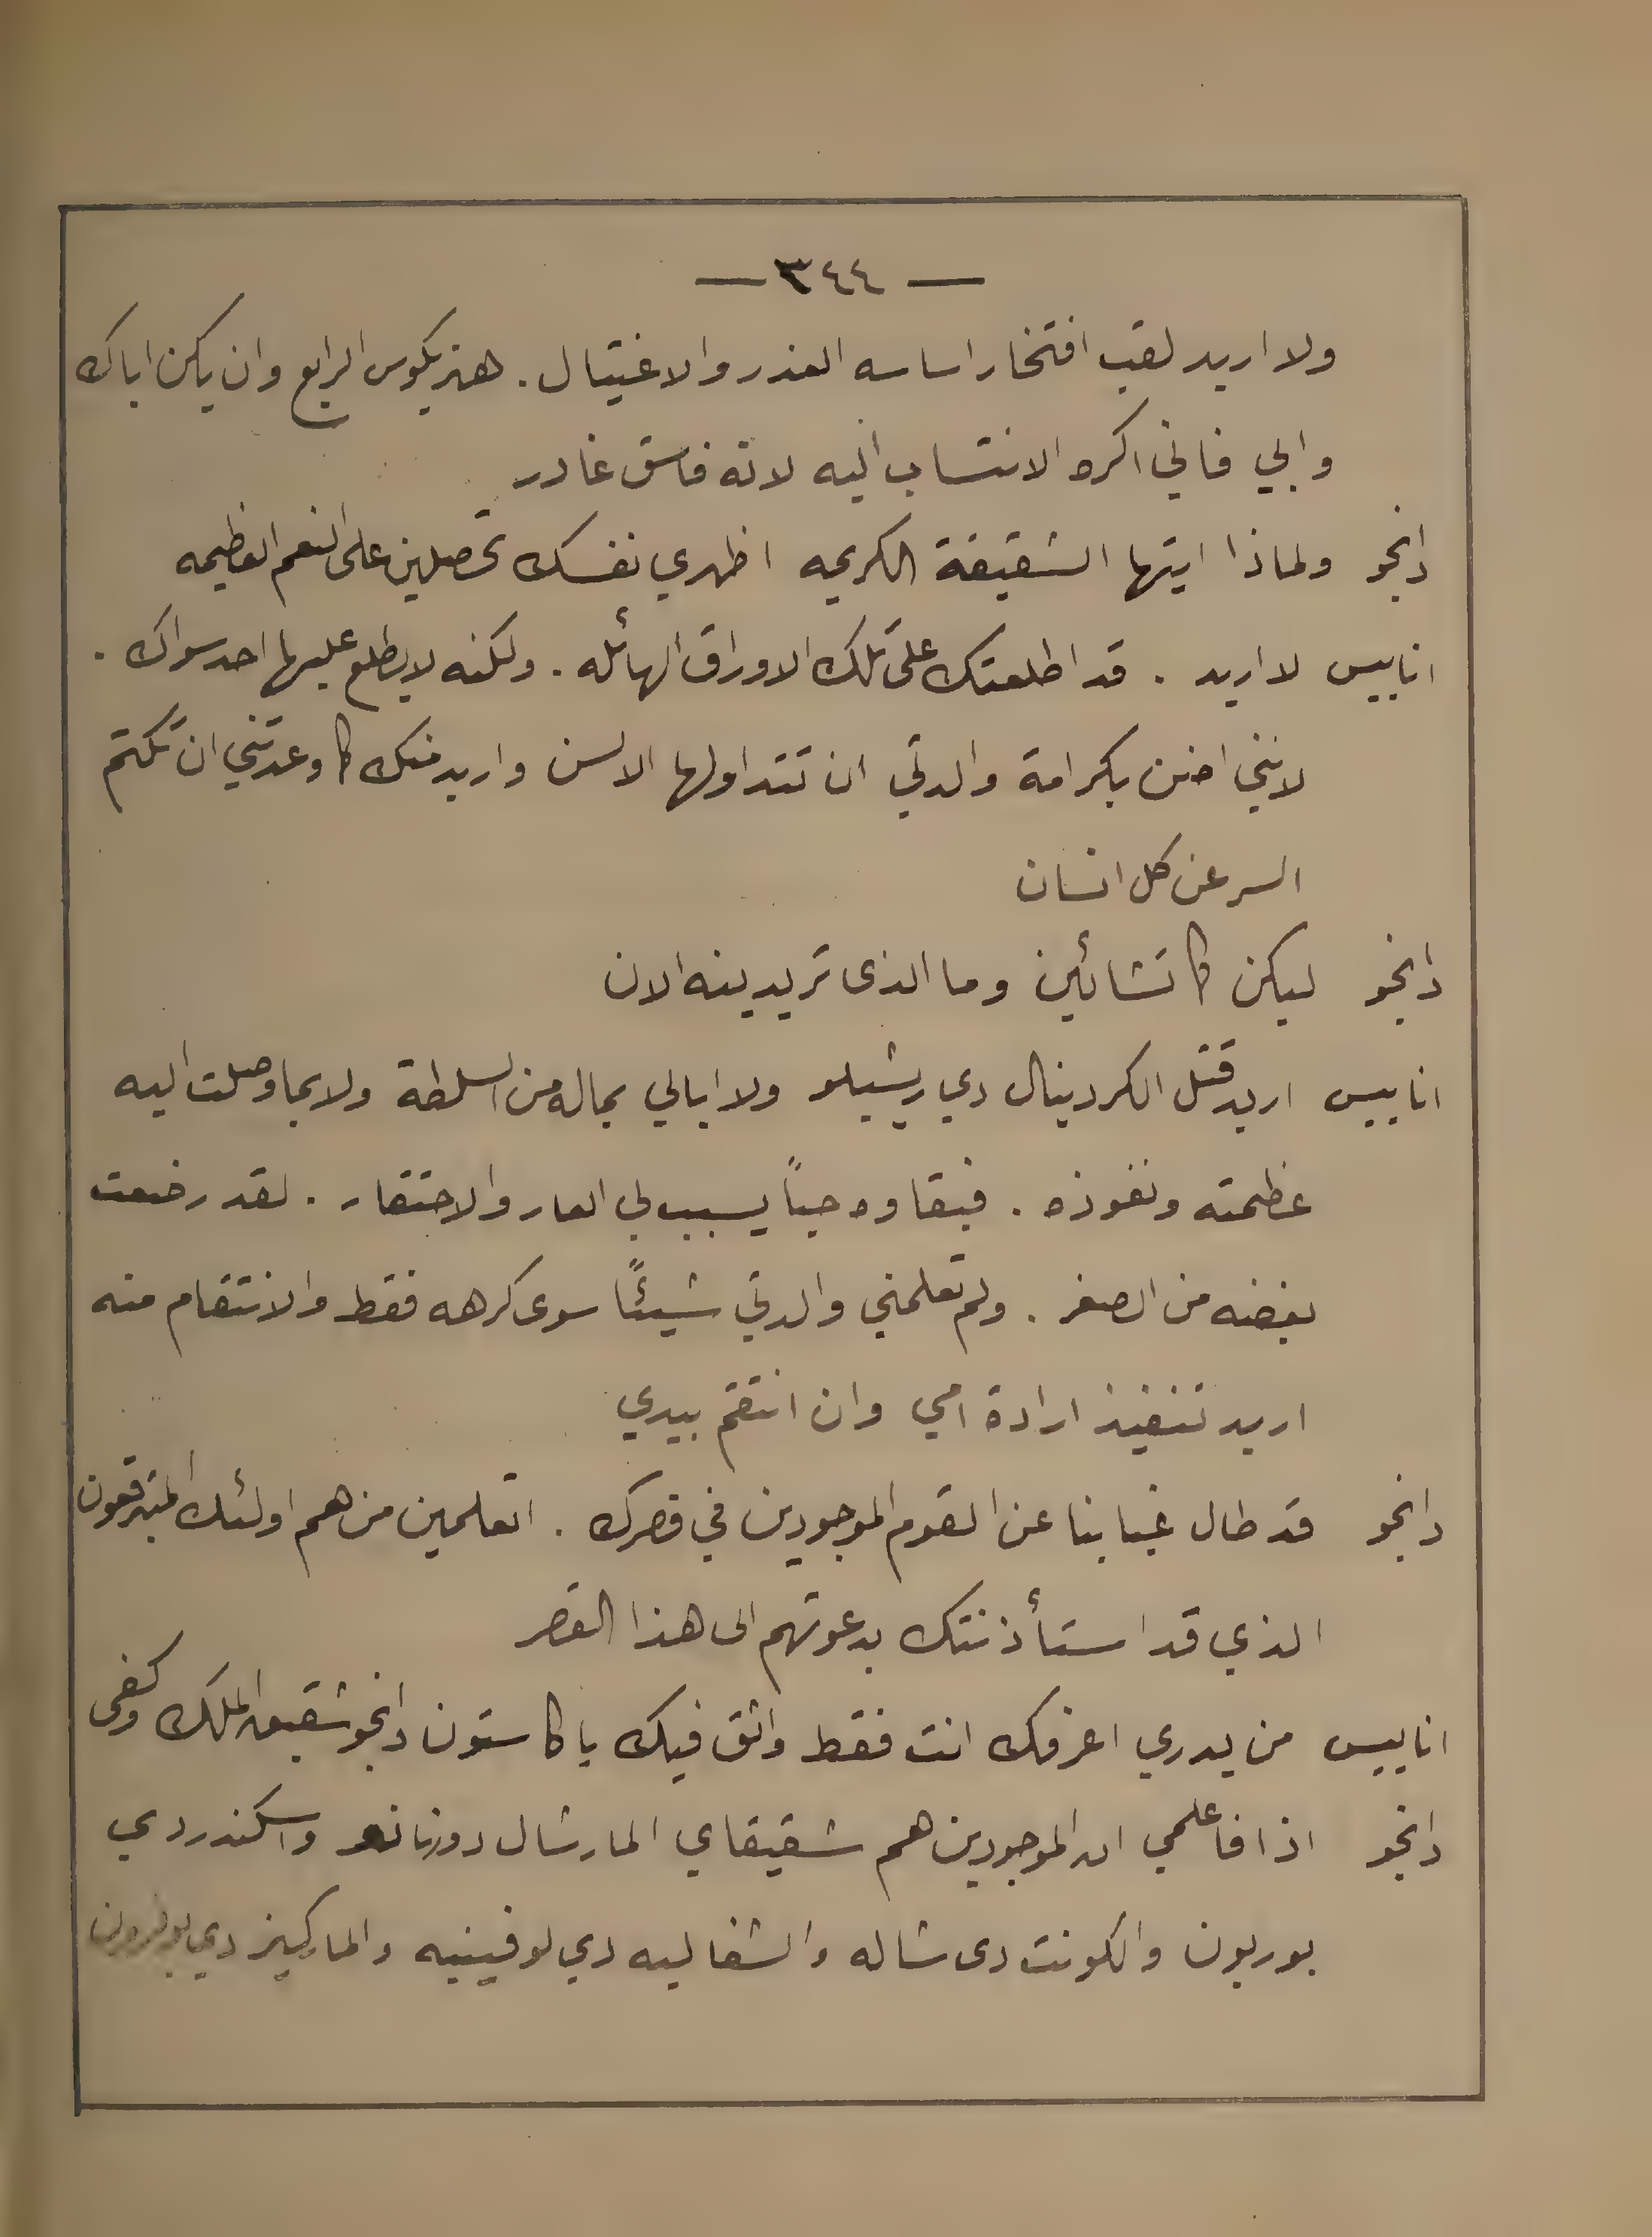 — ٣٤٤ —
ولا اريد لقب افتخار اساسه الغدر والاغتيال . هنريكوس الرابع وان يكن اباك
وابي فاني اكره الانتساب اليه لانه فاسق غادر
دانجو ولماذا ايتها الشقيقة الكريمه اظهري نفسك تحصلين على النعم العظيمه
اناييس لا اريد . قد اطلعتك على تلك الاوراق الهائله . ولكنه لا يطلع عليها احد سواك .
لانني اضن بكرامة والدتي ان تتداولها الالسن واريد منك كما وعدتني ان تكتم
السر عن كل انسان
دانجو ليكن كما تشائين وما الذى تريدينه الان
اناييس اريد قتل الكردينال دي ريشيلو ولا ابالي بماله من السلطة ولا بما وصلت اليه
عظمته ونفوذه . فبقاوه حياً يسبب لي العار والاحتقار . لقد رضعت
بغضه من الصغر . ولم تعلمني والدتي شيئاً سوى كرهه فقط والانتقام منه
اريد تنفيذ ارادة امي وان انتقم بيدي
دانجو قد طال غيابنا عن القوم الموجودين في قصرك . اتعلمين من هم اولئك المتبرقعون
الذي قد استأذنتك بدعوتهم الى هذا القصر
اناييس من يدري اعرفك انت فقط واثق فيك يا كاستون دانجو شقيق الملك وكفى
دانجو اذا فاعلمي ان الموجودين هم شقيقاي المارشال دورنانو واسكندر دي
بوربون والكونت دى شاله والشفاليه دي لوفينيه والماركيز دي